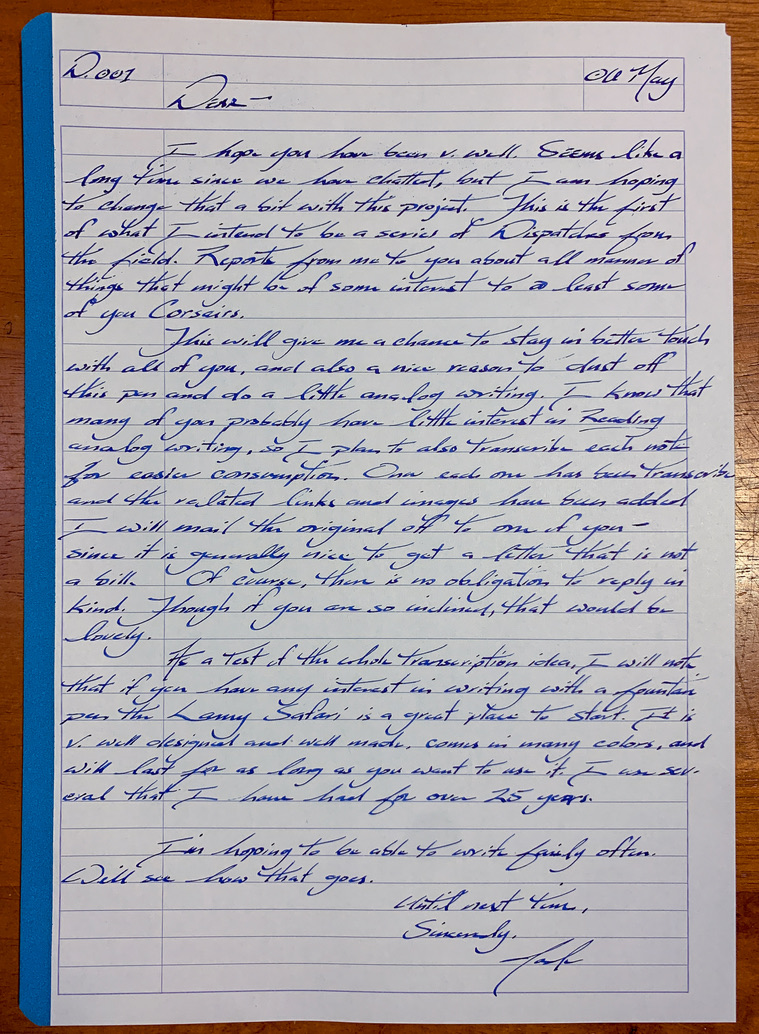 D.001 06 May
Dear—
I hope you have been v. well. Seems like a
long time since we have chatted, but I am hoping
to change that a bit with this project. This is the first
of what I intend to be a series of Dispatches from
the field. Reports from me to you about all manner of
things that might be of some interest to @ least some
of you Corsairs.
This will give me a chance to stay in better touch
with all of you, and also a nice reason to dust off
this pen and do a little analog writing. I know that
many of you probably have little interest in Reading
analog writing, so I plan to also transcribe each note
for easier consumption. Once each one has been transcribe
and the related links and images have been added
I will mail the original off to one of you—
since it is generally nice to get a letter that is not
a bill. Of course, there is no obligation to reply in
kind. Though if you are so inclined, that would be
lovely.
As a Test of the whole transcription idea, I will note
that if you have any interest in writing with a fountain
pen the Lamy Safari is a great place to start. It is
v. well designed and well made, comes in many colors, and
will last for as long as you want to use it. I use sev-
eral that I have had for over 25 years.
I'm hoping to be able to write fairly often.
Will see how that goes.
Until next time,
Sincerely,